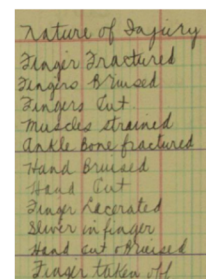 Nature of Injury
Finger Fractured
Fingers Bruised
Fingers Cut
Muscles strained
Ankle Bone fractured
Hand Bruised
Hand Cut
Finger Lacerated
Sliver in finger
Hand cut & Bruised
Finger taken off